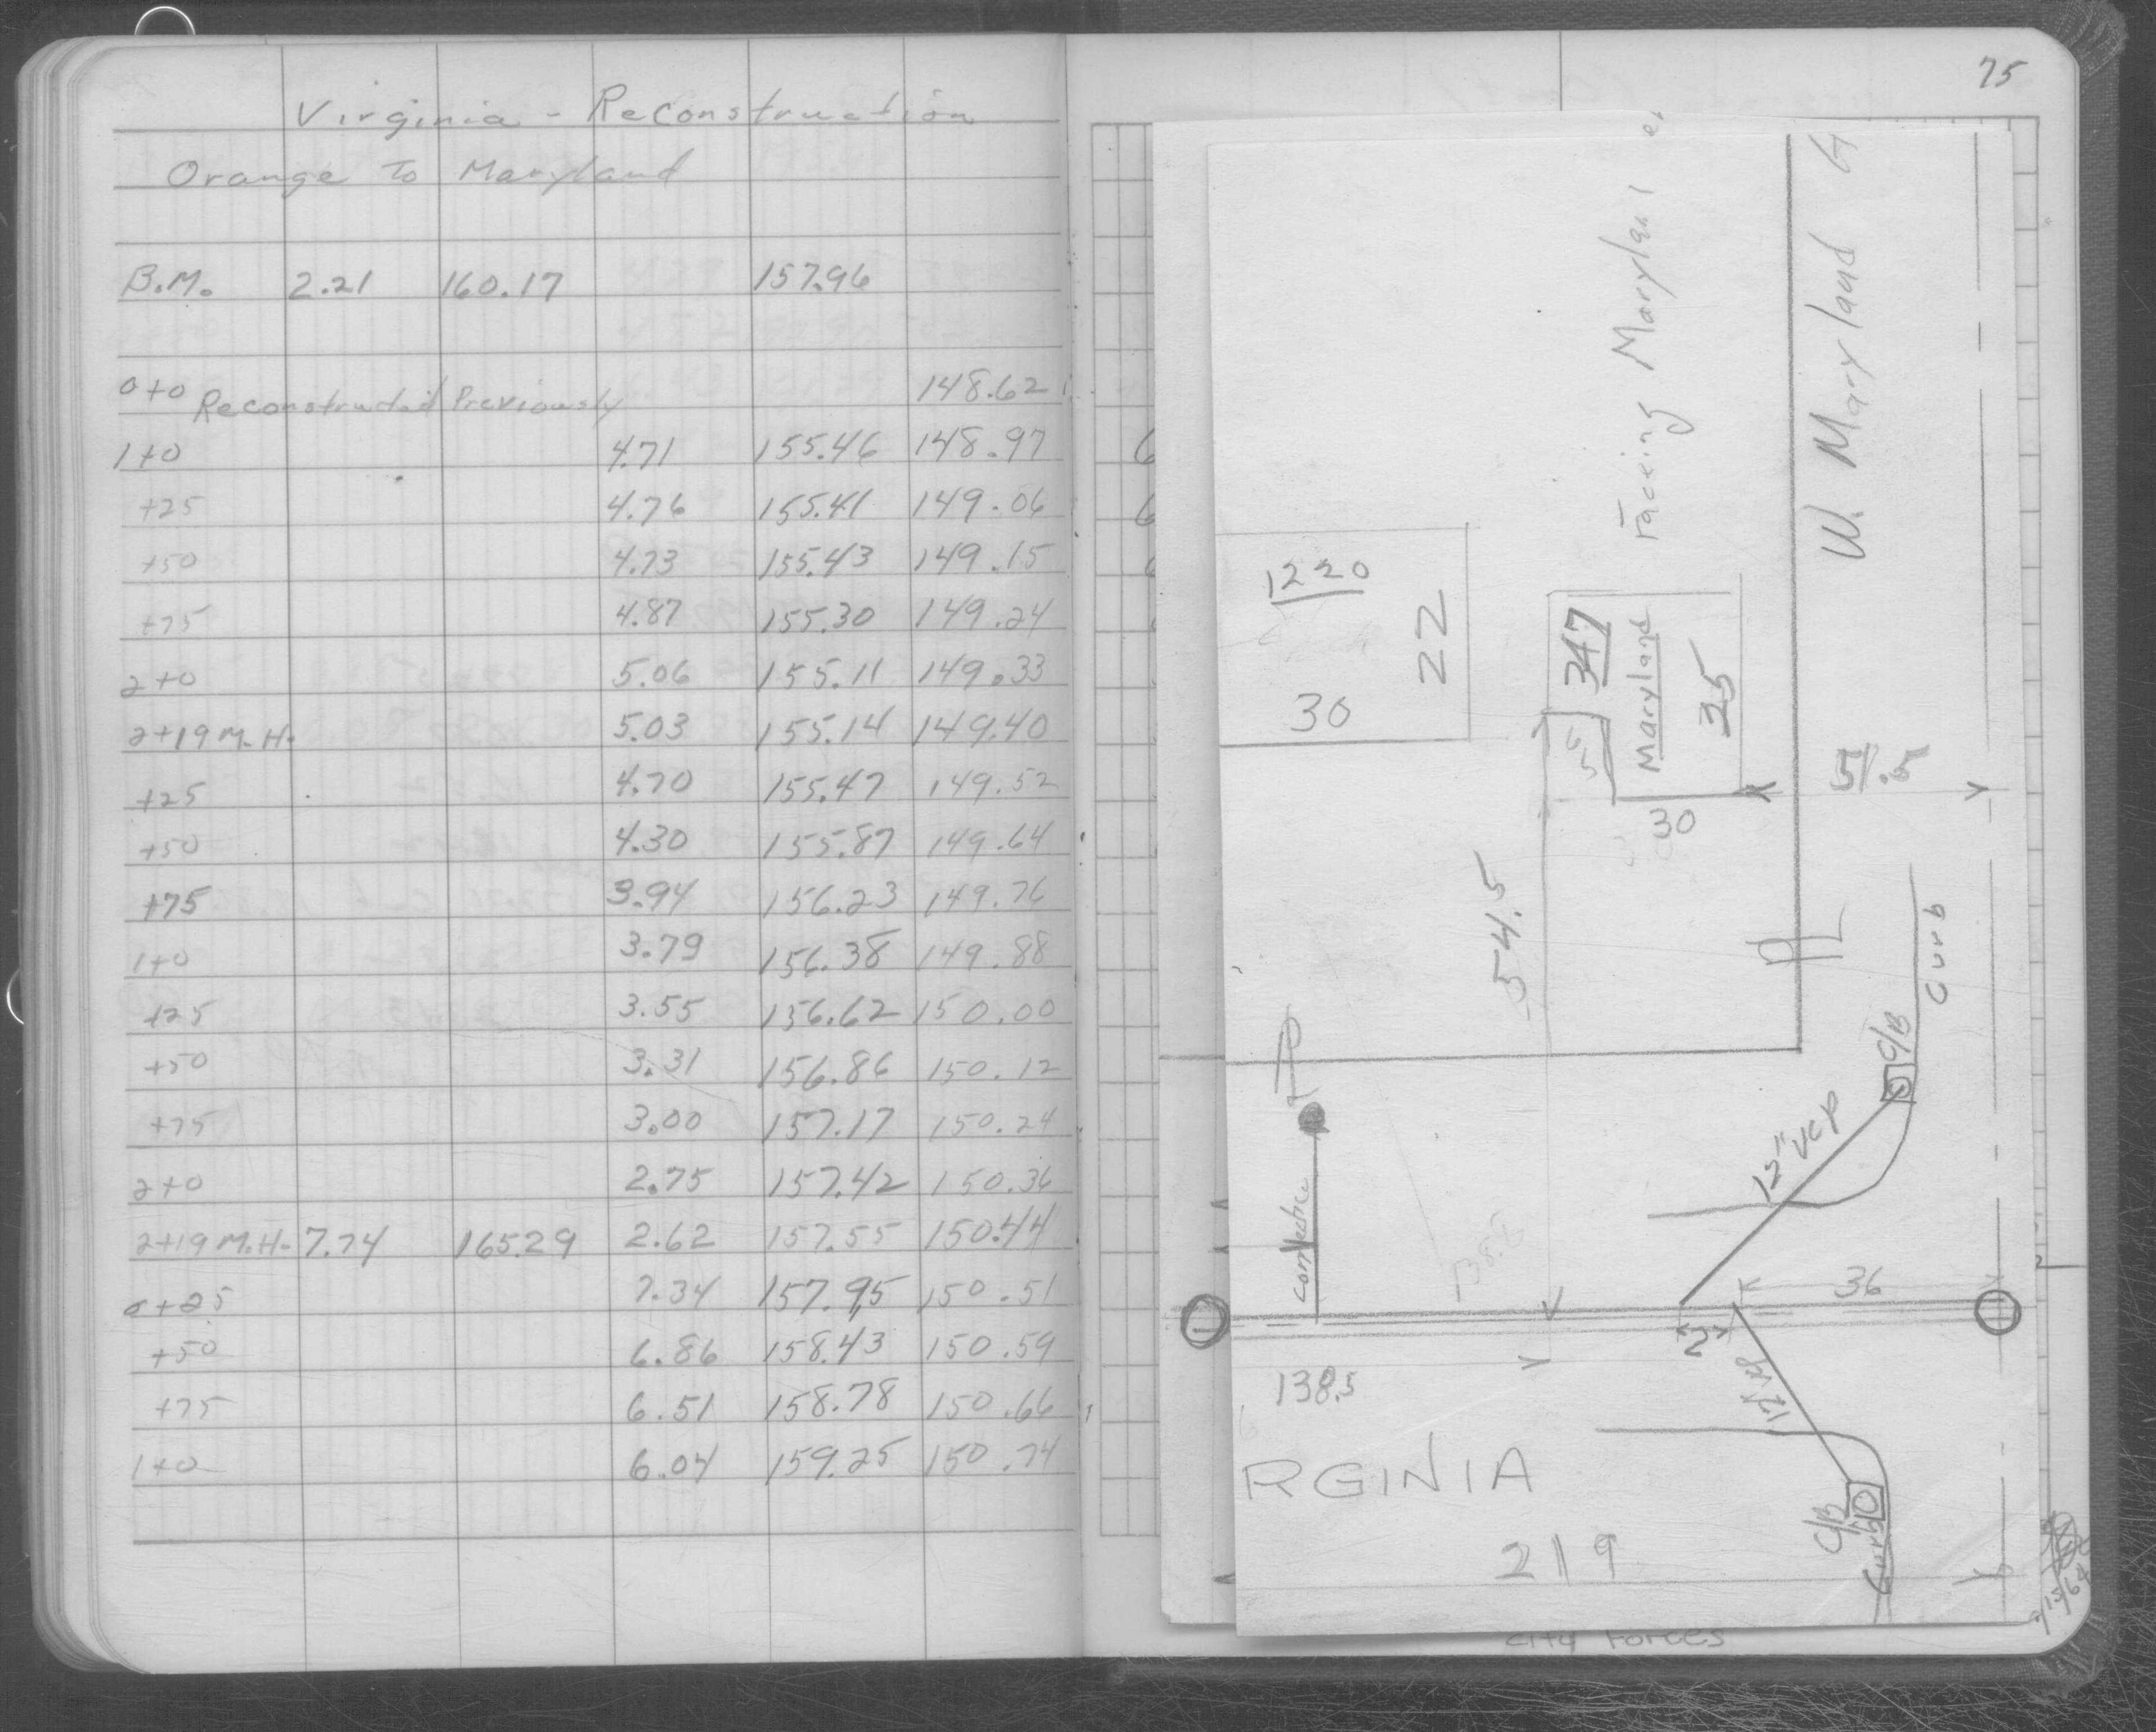 Virginia - Reconstruction
Orange To Maryland
B.M. 2.21 160.17 157.96
0+0 Reconstructed Previously 148.62
1+0 4.71 155.46 148.97
+25 4.76 155.41 149.06
+50 4.73 155.43 149.15
+75 4.87 155.30 149.24
2+0 5.06 155.11 149.33
2+19 M.H. 5.03 155.14 149.40
+25 4.70 155.47 149.52
+50 4.30 155.87 149.64
+75 3.94 156.23 149.76
1+0 3.79 156.38 149.88
+25 3.55 156.62 150.00
+50 3.31 156.86 150.12
+75 3.00 157.17 150.24
2+0 2.75 157.42 150.36
2+19 M.H. 7.74 165.29 2.62 157.55 150.44
0+25 7.34 157.95 150.51
+50 6.86 158.43 150.59
+75 6.51 158.78 150.66
1+0 6.04 159.25 150.74
75
Facing Maryland
W. Maryland
1220
22
30
347
Maryland
25
30
51.5
54.5
PL
Curb
C/B
12" VCP
connection
36
2
12" VCP
138.5
RGINIA
219
C/B
Curb
City Forces